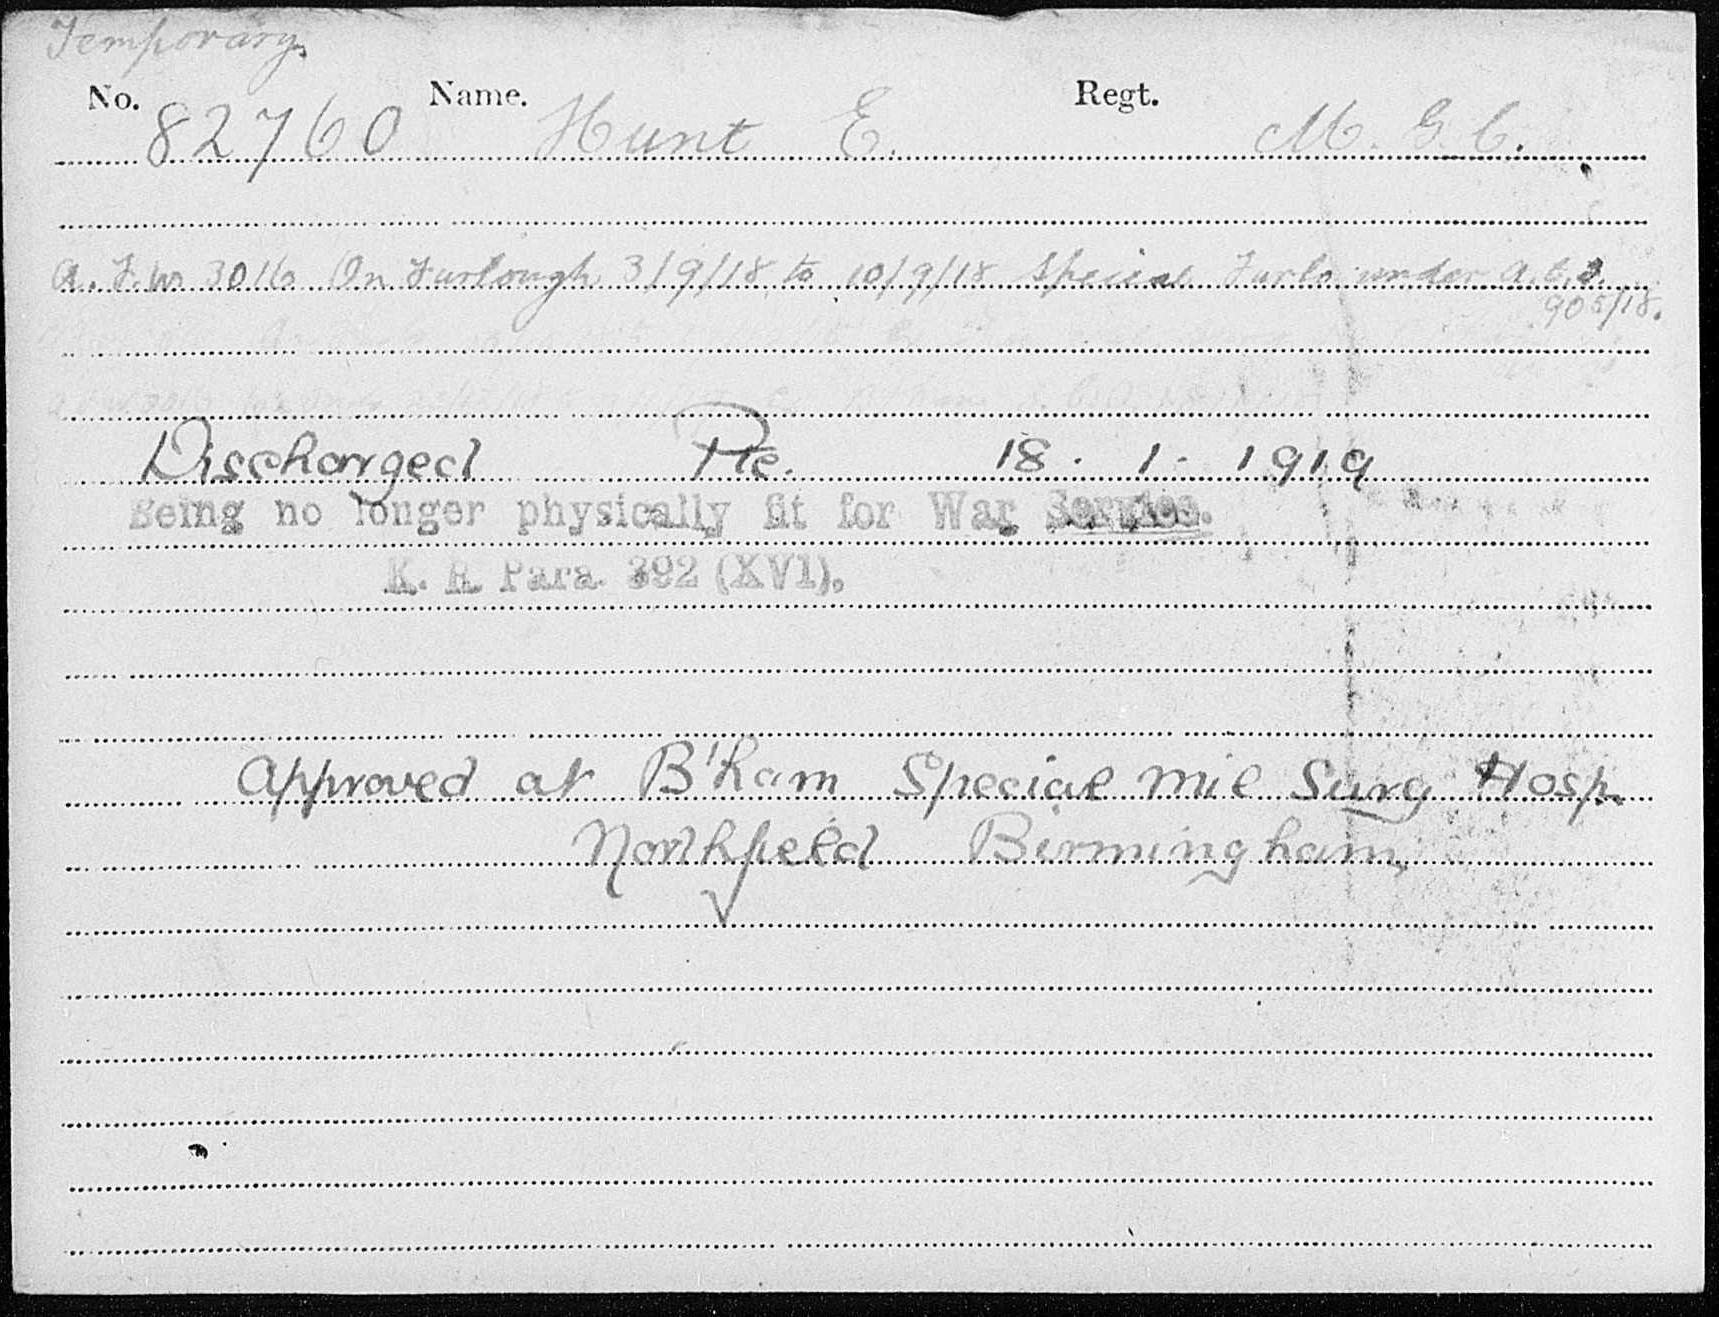 Temporary.
No. 82760 Name. Hunt E. Regt. M. G. C.
A.F.W. 3016 On Furlough 3/9/18 to 10/9/18 Special Furlo under A.C.I.
905/18.
Discharged Pte. 18. 1. 1919
Being no longer physically fit for War Service.
K. R. Para. 392 (XVI),
Approved at B'ham Special Mil Surg Hosp.
Northfield Birmingham,